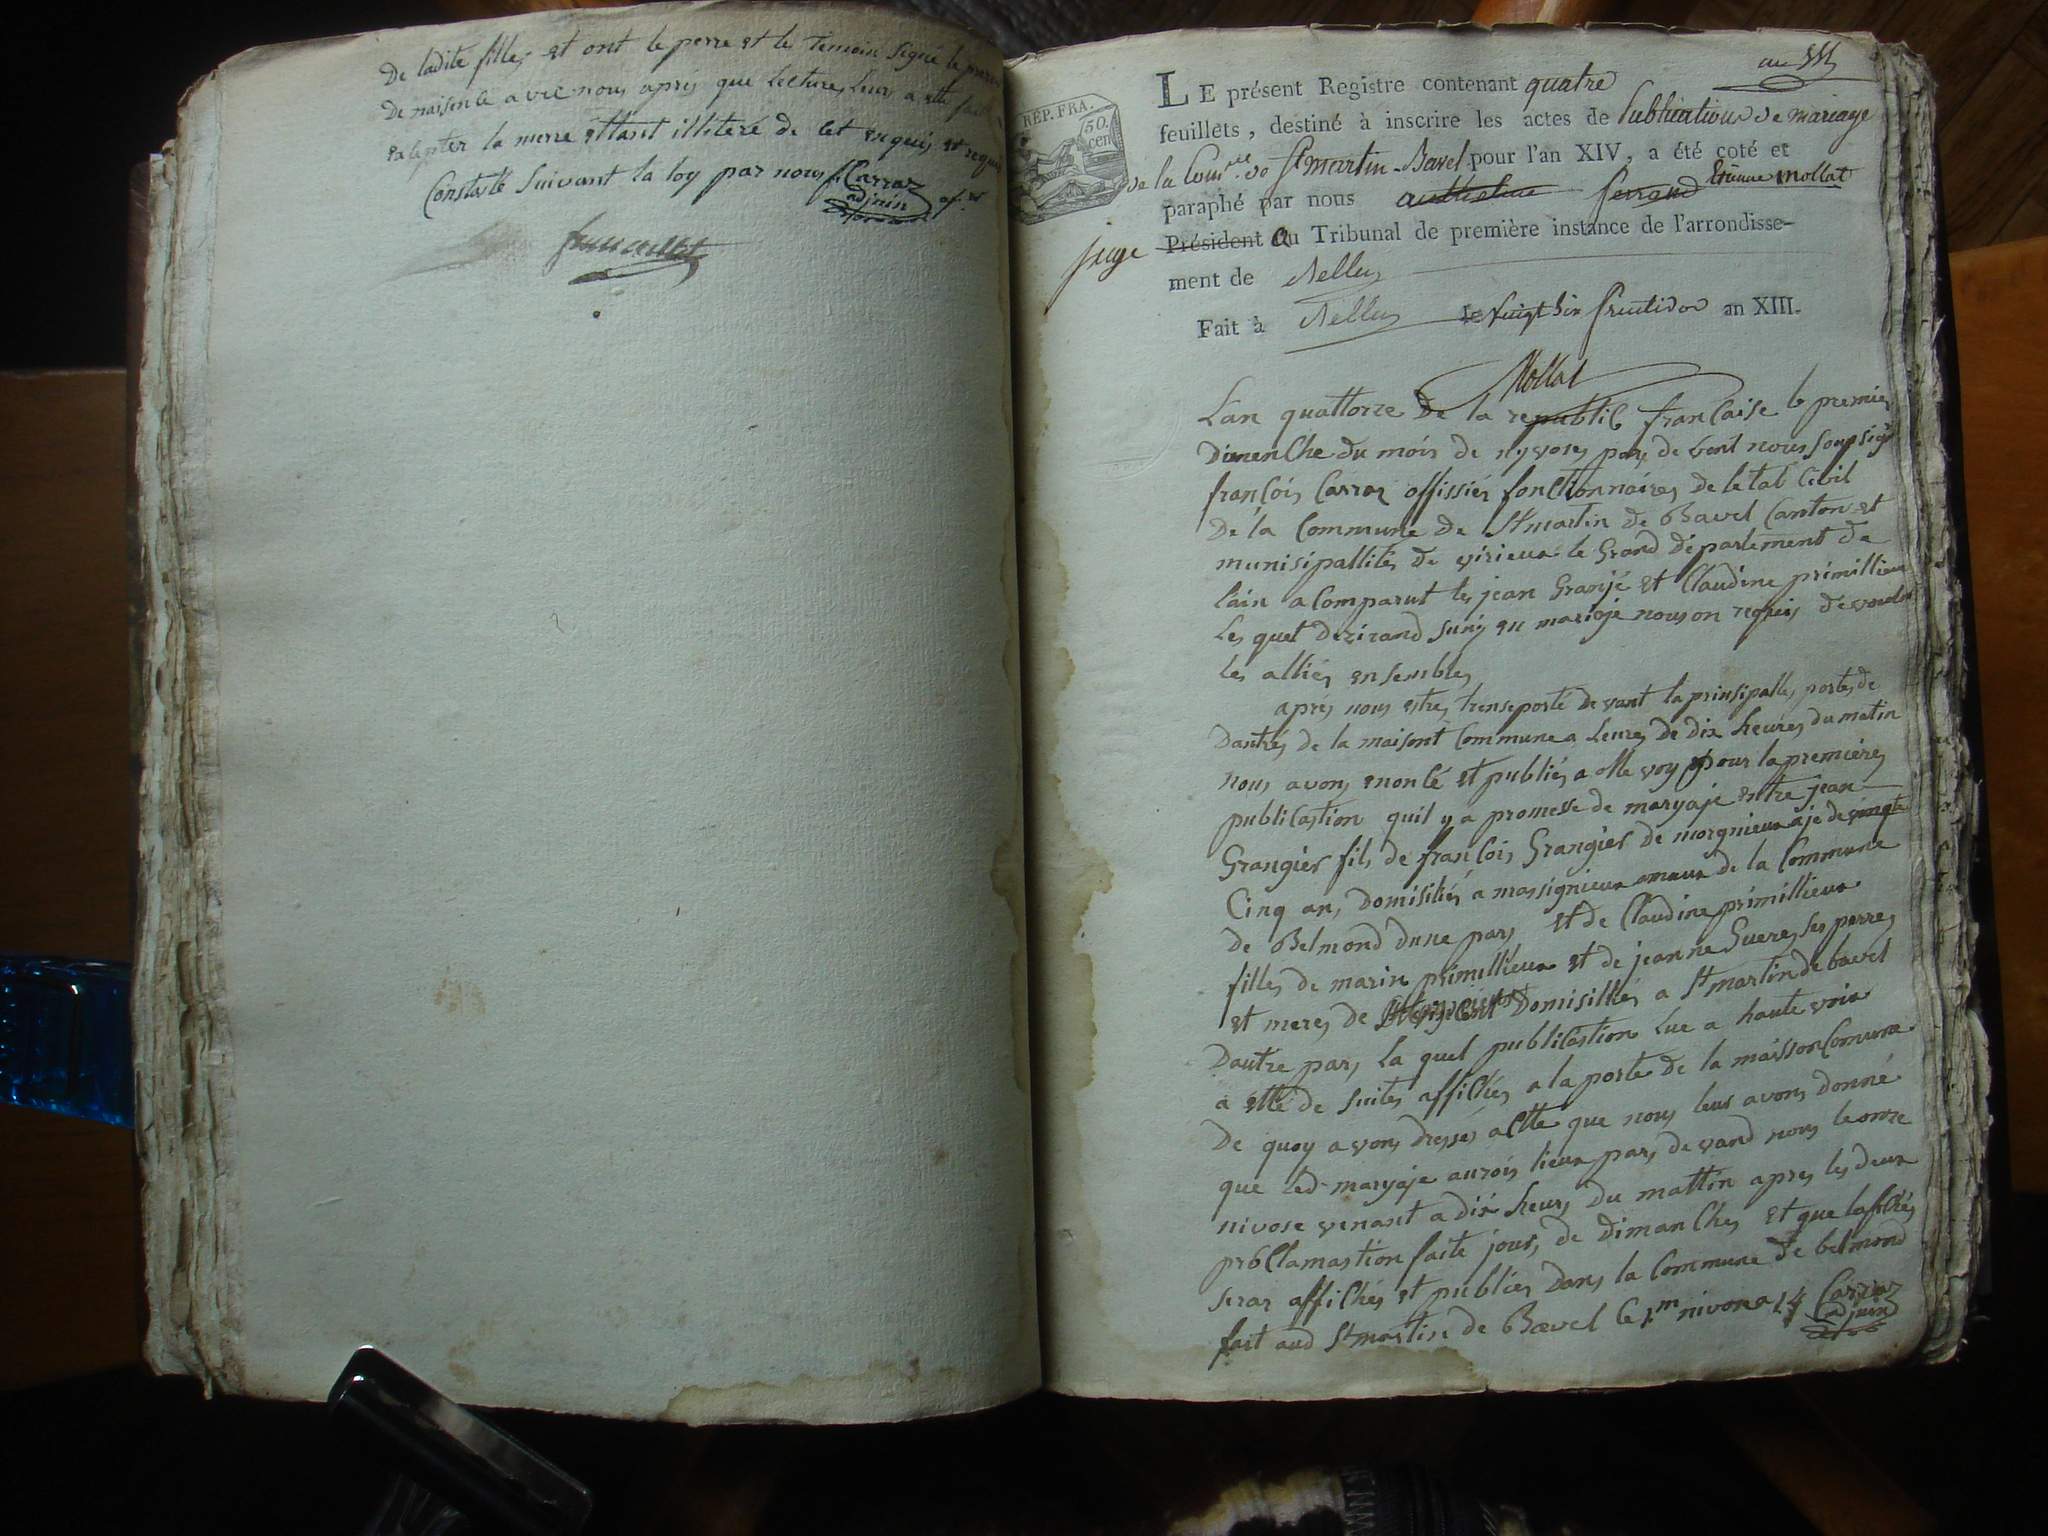 De ladite filles et ont le perre et le Temoin signé le present
De naisence avec nous apres que Lectures Leurs a etté fait
accepter la merre ettant illiteré de cet enquis et requis
Constatté Suivant la loy par nous f. Carraz
adjoin
RÉP. FRA.
50. cen
an XIV
LE présent Registre contenant quatre
feuillets, destiné à inscrire les actes de Publications de mariage
de la Comune de St martin-Bavel pour l'an XIV, a été coté et
paraphé par nous anthelme ferrand Etienne Mollat
juge Président au Tribunal de première instance de l'arrondisse-
ment de Belley
Fait à Belley le vingt six fructidor an XIII.
Mollat
Lan quattorze de la republic francaise le premier
Dimenche du mois de nyvores par de vent nous soupsigné
francois Carraz offissiér fonctionnaires de letat Civil
De la Commune de St martin de Bavel Canton et
munisipallités de virieux le Grand département de
lain a Comparut les jean Granjé et Claudine primillieux
Les quel dezirand sunir en mariaje nous on requis de vouloir
Les alliér ensembles
apres nous estres trensporté devant la prinsipalles portes de
Dantrés de la maisont Commune a Leures de dix heures du matin
nous avons enoncé et publiés a otte voy pour la premiéres
publicastion quil y a promesse de maryaje entre jean
Grangier fils de francois Grangier de morgnieux aje de vingte
Cinq ans Domisiliés a massignieux de la Commune
de Belmond dune pars et de Claudine primillieux
filles de marin primillieux et de jeanne Gueres ses perres
et meres de Domisilliés a St martin de bavel
Dautre pars, La quel publicastion Lue a haute voix
a etté de suites affichés a la porte de la maisson Comune
De quoy avons dressés actte que nous leur avons donné
que Led. maryaje aurois lieux pars de vand nous le onze
nivose venant a dix heurs du mattin apres les deux
proclamastion faite jours de dimanches et que lafichés
seras affichés et publiés Dans la Commune de belmond
fait aud St martin de Bavel le 1m nivose 14 Carraz
adjoin